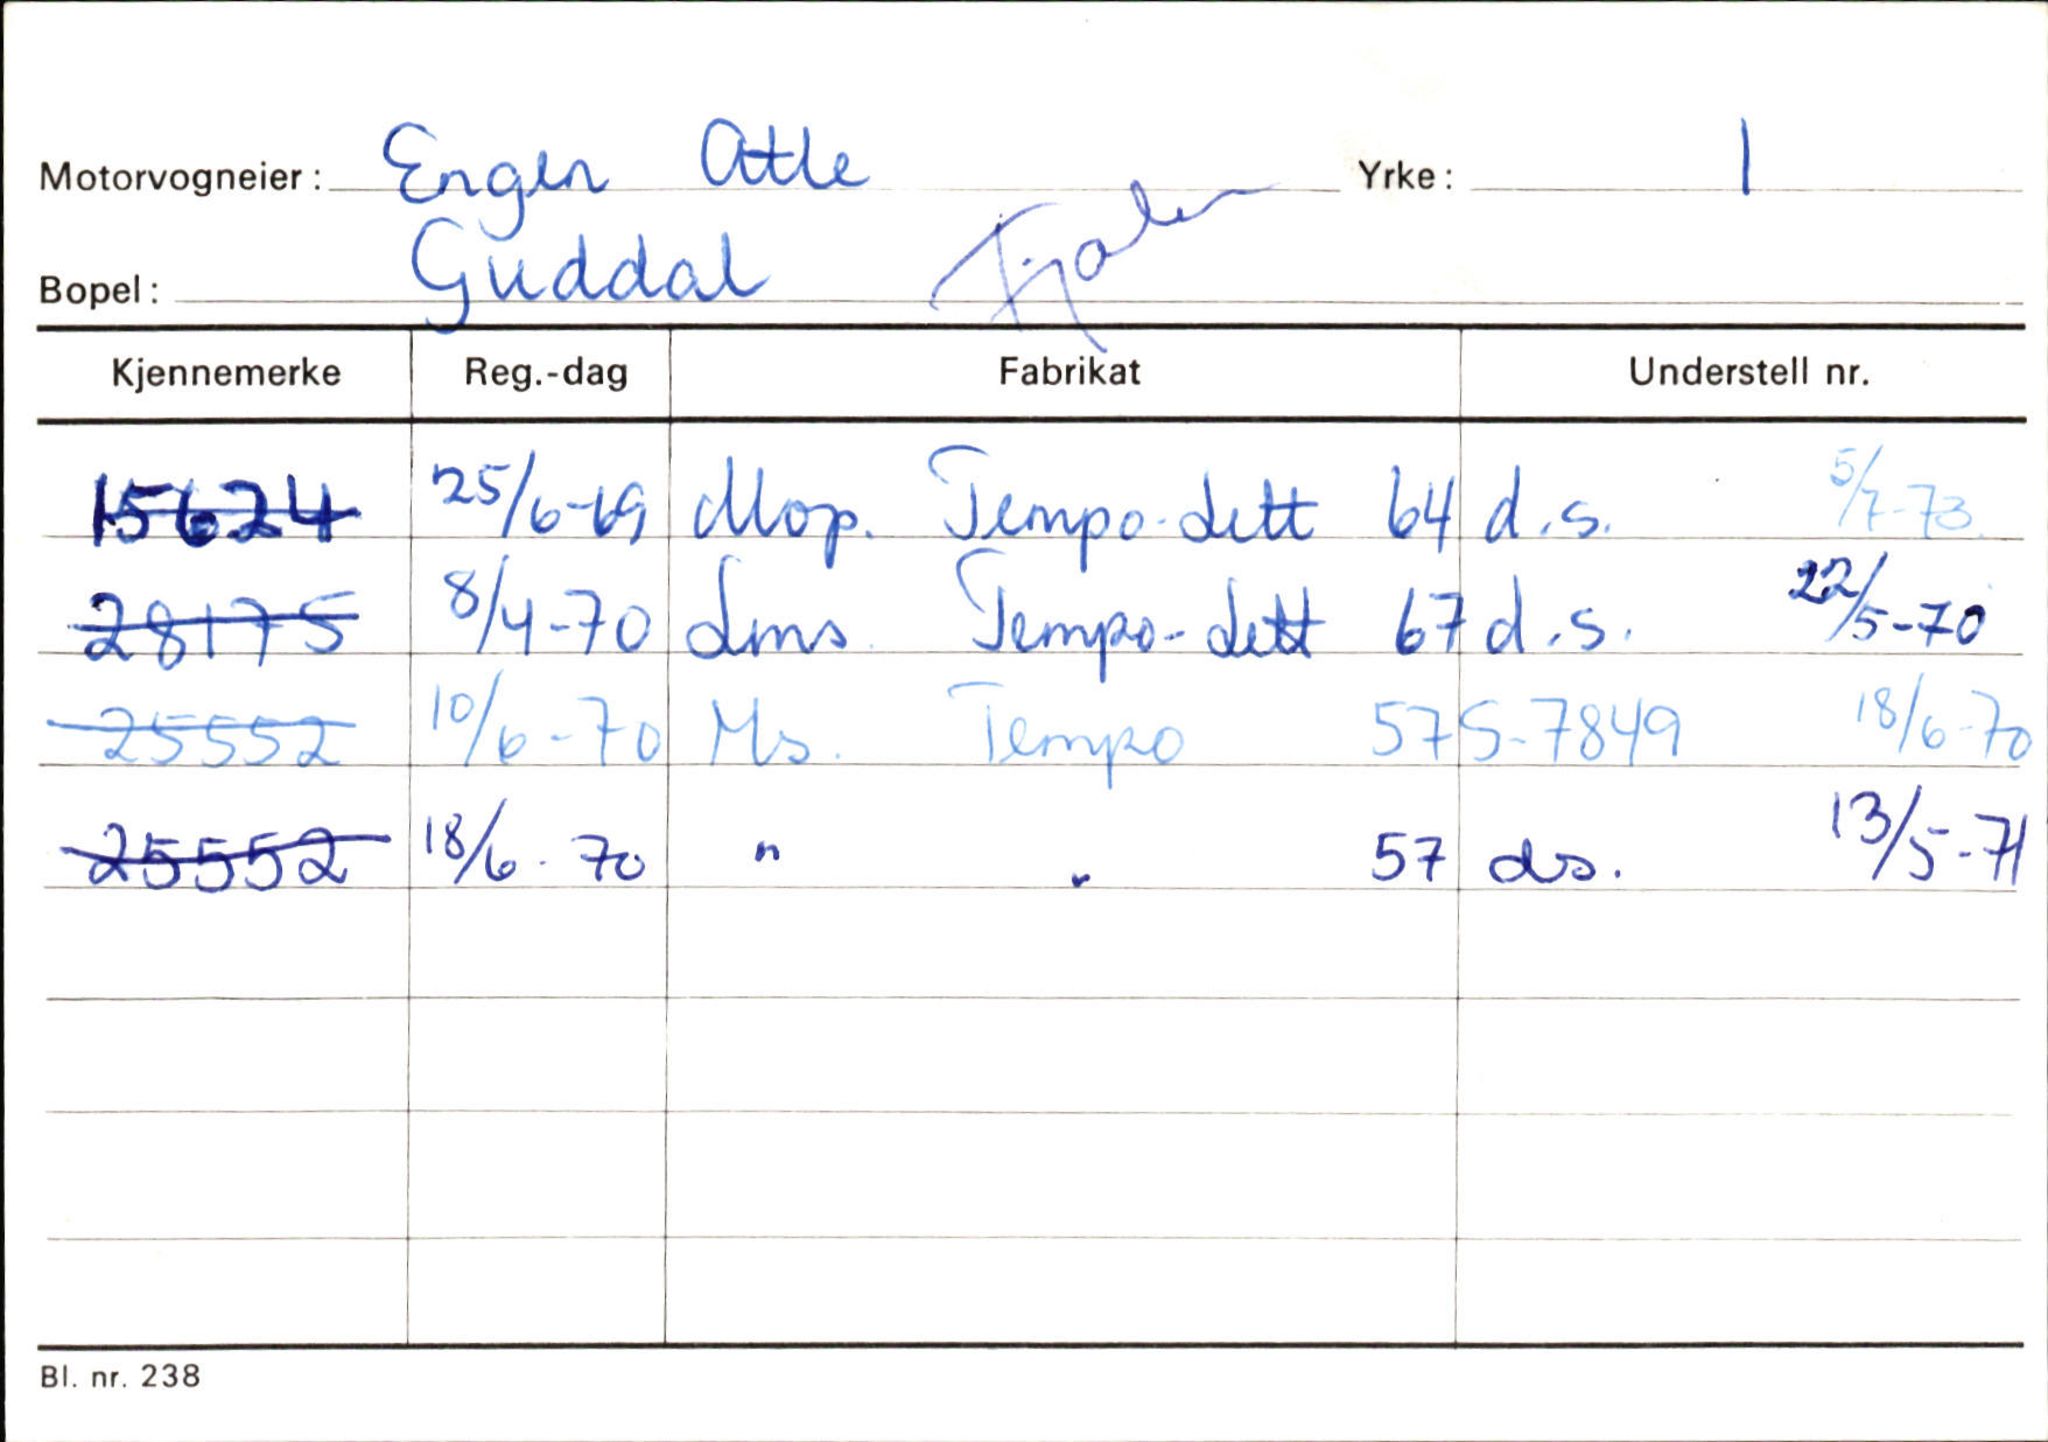 Motorvogneier: Engen Atle Yrke: 1
Bopel: Guddal Fjaler
Kjennemerke Reg.-dag Fabrikat Understell nr.
15624 25/6-69 Mop. Tempo-lett 64 d.s. 5/7-73.
28175 8/4-70 Lms. Tempo-lett 67 d.s. 22/5-70
25552 10/6-70 Ms. Tempo 57 S-7849 18/6-70
25552 18/6-70 " " 57 ds. 13/5-71
Bl. nr. 238